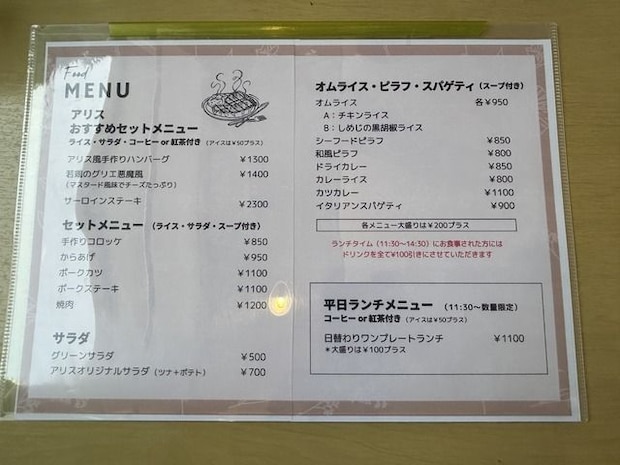 Food
MENU
アリス
おすすめセットメニュー
ライス・サラダ・コーヒー or 紅茶付き （アイスは¥50プラス）
アリス風手作りハンバーグ ¥1300
若鶏のグリエ悪魔風 ¥1400
(マスタード風味でチーズたっぷり)
サーロインステーキ ¥2300
セットメニュー （ライス・サラダ・スープ付き）
手作りコロッケ ¥850
からあげ ¥950
ポークカツ ¥1100
ポークステーキ ¥1100
焼肉 ¥1200
サラダ
グリーンサラダ ¥500
アリスオリジナルサラダ（ツナ+ポテト） ¥700
オムライス・ピラフ・スパゲティ（スープ付き）
オムライス 各¥950
A：チキンライス
B：しめじの黒胡椒ライス
シーフードピラフ ¥850
和風ピラフ ¥800
ドライカレー ¥850
カレーライス ¥800
カツカレー ¥1100
イタリアンスパゲティ ¥900
各メニュー大盛りは¥200プラス
ランチタイム（11:30〜14:30）にお食事された方には
ドリンクを全て¥100引きにさせていただきます
平日ランチメニュー （11:30〜数量限定）
コーヒー or 紅茶付き （アイスは¥50プラス）
日替わりワンプレートランチ ¥1100
＊大盛りは¥100プラス